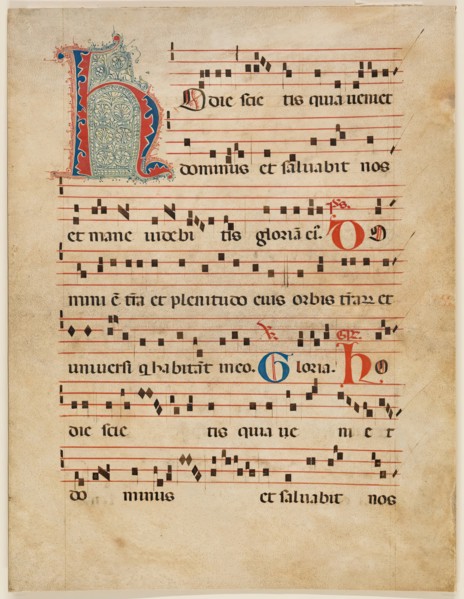 HOdie scie tis quia ueniet
dominus et saluabit nos
et mane uidebi tis gloriã ei. ps. DO
mini ē tr̃a et plenitudo eius orbis tr̃aꝝ et
uniuersi q̃ habitãt in eo. ℣. Gloria. HO
die scie tis quia ue ni e t
do minus et saluabit nos